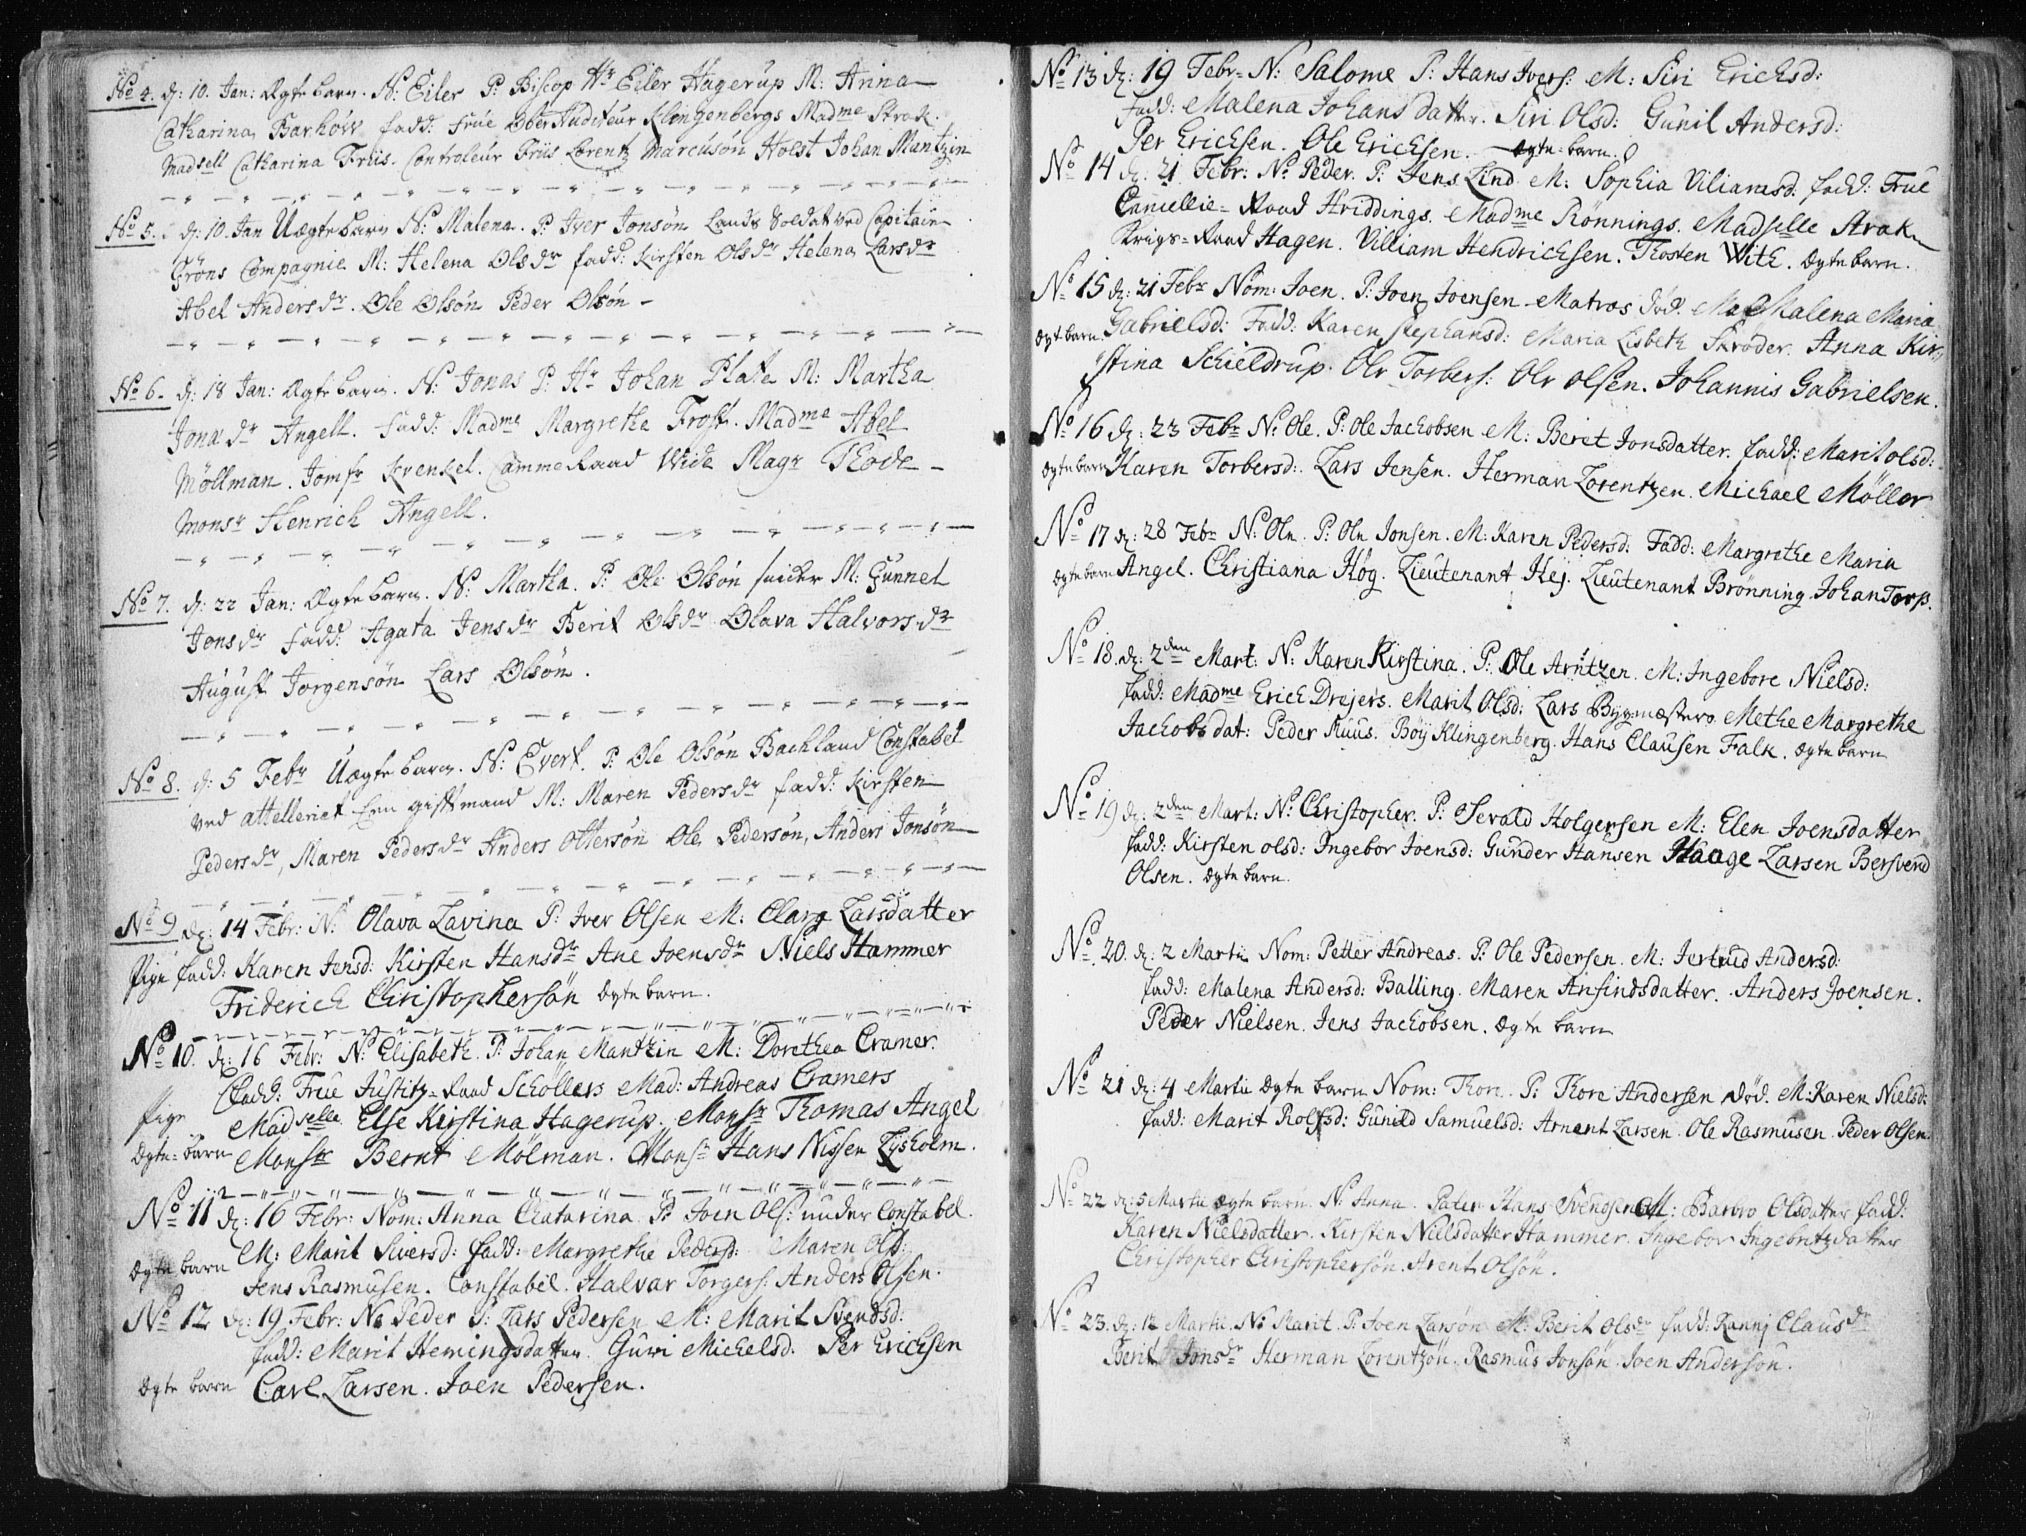 No 4. d: 10. Jan: Ægte barn. N: Eiler P: Biscop Hr Eiler Hagerup M: Anna
Catharina Barhow fadd: Frue Ober Auditeur Klingenbergs Madme Strak.
Madsell Catharina Friis. Controleur Friis Lorentz Marcusøn Holst Johan Mentzin
No 5. d: 10. Jan Uægte barn N: Malena. P: Iver Jonsøn Lands Soldat ved Capitain
Grøns Compagnie M: Helena Olsdr fadd: Kirsten Olsdr Helena Larsdr
Abel Andersdr. Ole Olsøn Peder Olsøn
No 6. d: 18 Jan: Ægte barn. N: Jonas P: Hr Johan Plate M: Martha
Jonædr Angell. fadd: Madme Margrethe Frost. Madme Abel
Möllman. Jomfr Krenkel. Camme Raad Wide Magr Thode
Monsr Henrich Angell.
No 7. d: 22 Jan: Ægte barn. N: Martha. P: Ole Olsøn snider M: Gunnel
Jonsdr fadd: Agata Jensdr Berit Olsdr Olava Halvorsdr
August Jorgensøn Lars Olsøn.
No 8. d: 5 Febr Uægte barn. N: Evert. P: Ole Olsøn Bachland Constabel
ved attelleriet Een gift mand M: Maren Pedersdr fadd: Kirsten
Pedersdr, Maren Pedersdr Anders Ottersøn Ole Pedersøn, Anders Jonsøn
No 9 d: 14 Febr: N: Olava Lavina P: Iver Olsen M: Clara Larsdatter
Pige fadd: Karen Jensd: Kirsten Hansdr Ane Joensdr Niels Hammer
Friderich Christophersøn Ægte barn.
No 10. d: 16 Febr: N: Elisabeth. P: Johan Mantzin M: Dorethea Cramer.
Fadd: Frue Justitz=Raad Schöllers Mad: Andreas Cramers
Pige Madselle Else Kirstina Hagerup. Monsr Thomas Angel
Ægte=barn Monsr Bernt Mölman. Monsr Hans Nissen Lysholm.
No 11 d: 16 Febr: Nom: Anna Chatarina P: Joen Ols: under Constabel.
M: Marit Siversd: fadd: Margrethe Pedersd: Maren Olsd:
Ægte barn Jens Rasmusen. Constabel. Halvar Torgers: Anders Olsen.
No 12 d: 19 Febr: No Peder P: Lars Pedersen M: Marit Svendsd:
fadd: Marit Hemingsdatter. Guri Michelsd. Per Erichsen
Ægte barn Carl Larsen. Joen Pedersen.
No 13 d: 19 Febr= N: Salome P: Hans Ivers: M: Siri Erichsd:
fadd: Malena Johansdatter. Siri Olsd: Gunil Andersd:
Per Erichsen. Ole Erichsen. Ægte=barn.
No 14 d: 21 Febr: No Peder. P: Jens Lind M: Sophia Viliamsd: fadd: Frue
Cancellie=Raad Hriddings. Madme Rönnings. Madselle Arak
Krigs=Raad Hagen. Villiam Hendrichsen. Thosten With. Ægte barn.
No 15 d: 21 Febr Nom: Joen. P: Joen Joensen Matros død. M: Malena Maria
Ægt barn. Gabrielsd: Fadd: Karen Stephansd: Maria Lisbeth Skröder. Anna Kir=
stina Schieldrup. Ole Torbers: Ole Olsen. Johannis Gabrielsen.
No 16 d: 23 Febr N: Ole. P: Ole Jachobsen M: Beret Jonsdatter. fadd: Marit Olsd:
Ægte barn Karen Torbersd: Lars Jensen. Herman Lorentzen. Michael Möller
No 17 d: 28 Febr No Ole. P: Ole Jonsen. M: Karen Pedersd: Fadd: Margrethe Maria
Ægte barn Angel. Christiana Hög. Lieutenant Hej. Lieutenant Brönning. Johan Torp.
No 18. d: 2den Mart: N: Karen Kirstina. P: Ole Arntzen. M: Ingebore Nielsd:
fadd: Madme Erich Drejers. Marit Olsd: Lars Bygmæsters Methe Margrethe
Jachobsdat: Peder Ruus. Böy Klingenberg. Hans Clausen Falk. Ægte barn
No 19 d: 2den Mart: No Christopher. P: Sevald Holgersen M: Elen Joensdatter
fadd: Kirsten Olsd: Ingebor Joensd: Gunder Hansen Haage Larsen Bersvend
Olsen. Ægte barn.
No 20. d: 2 Martii Nom: Petter Andreas. P: Ole Pedersen. M: Jertrud Andersd:
fadd: Malena Andersd: Balling. Maren Ansindsdatter. Anders Joensen.
Peder Nielsen. Jens Jachobsen. Ægte barn
No 21 d: 4 Martii Ægte barn Nom: Thore. P: Thore Andersen død. M: Karen Nielsd:
fadd: Marit Rolfsd: Gunild Samuelsd: Arnent Larsen. Ole Rasmusen. Peder Olsen.
No 22 d: 5 Martii Ægte barn. N: Anna. Pater Hans Svendsen M: Barbro Olsdatter fadd:
Karen Nielsdatter. Kirsten Nielsdatter Hammer. Ingebor Ingebritzdatter
Christopher Christophersøn. Arent Olsøn.
No 23. d: 12 Martii. No Marit. P: Joen Larsøn M: Berit Olsdr fadd: Ranni Clausdr
Berit Jonsdr Herman Lorentzøn. Rasmus Jonsøn. Joen Andersøn.